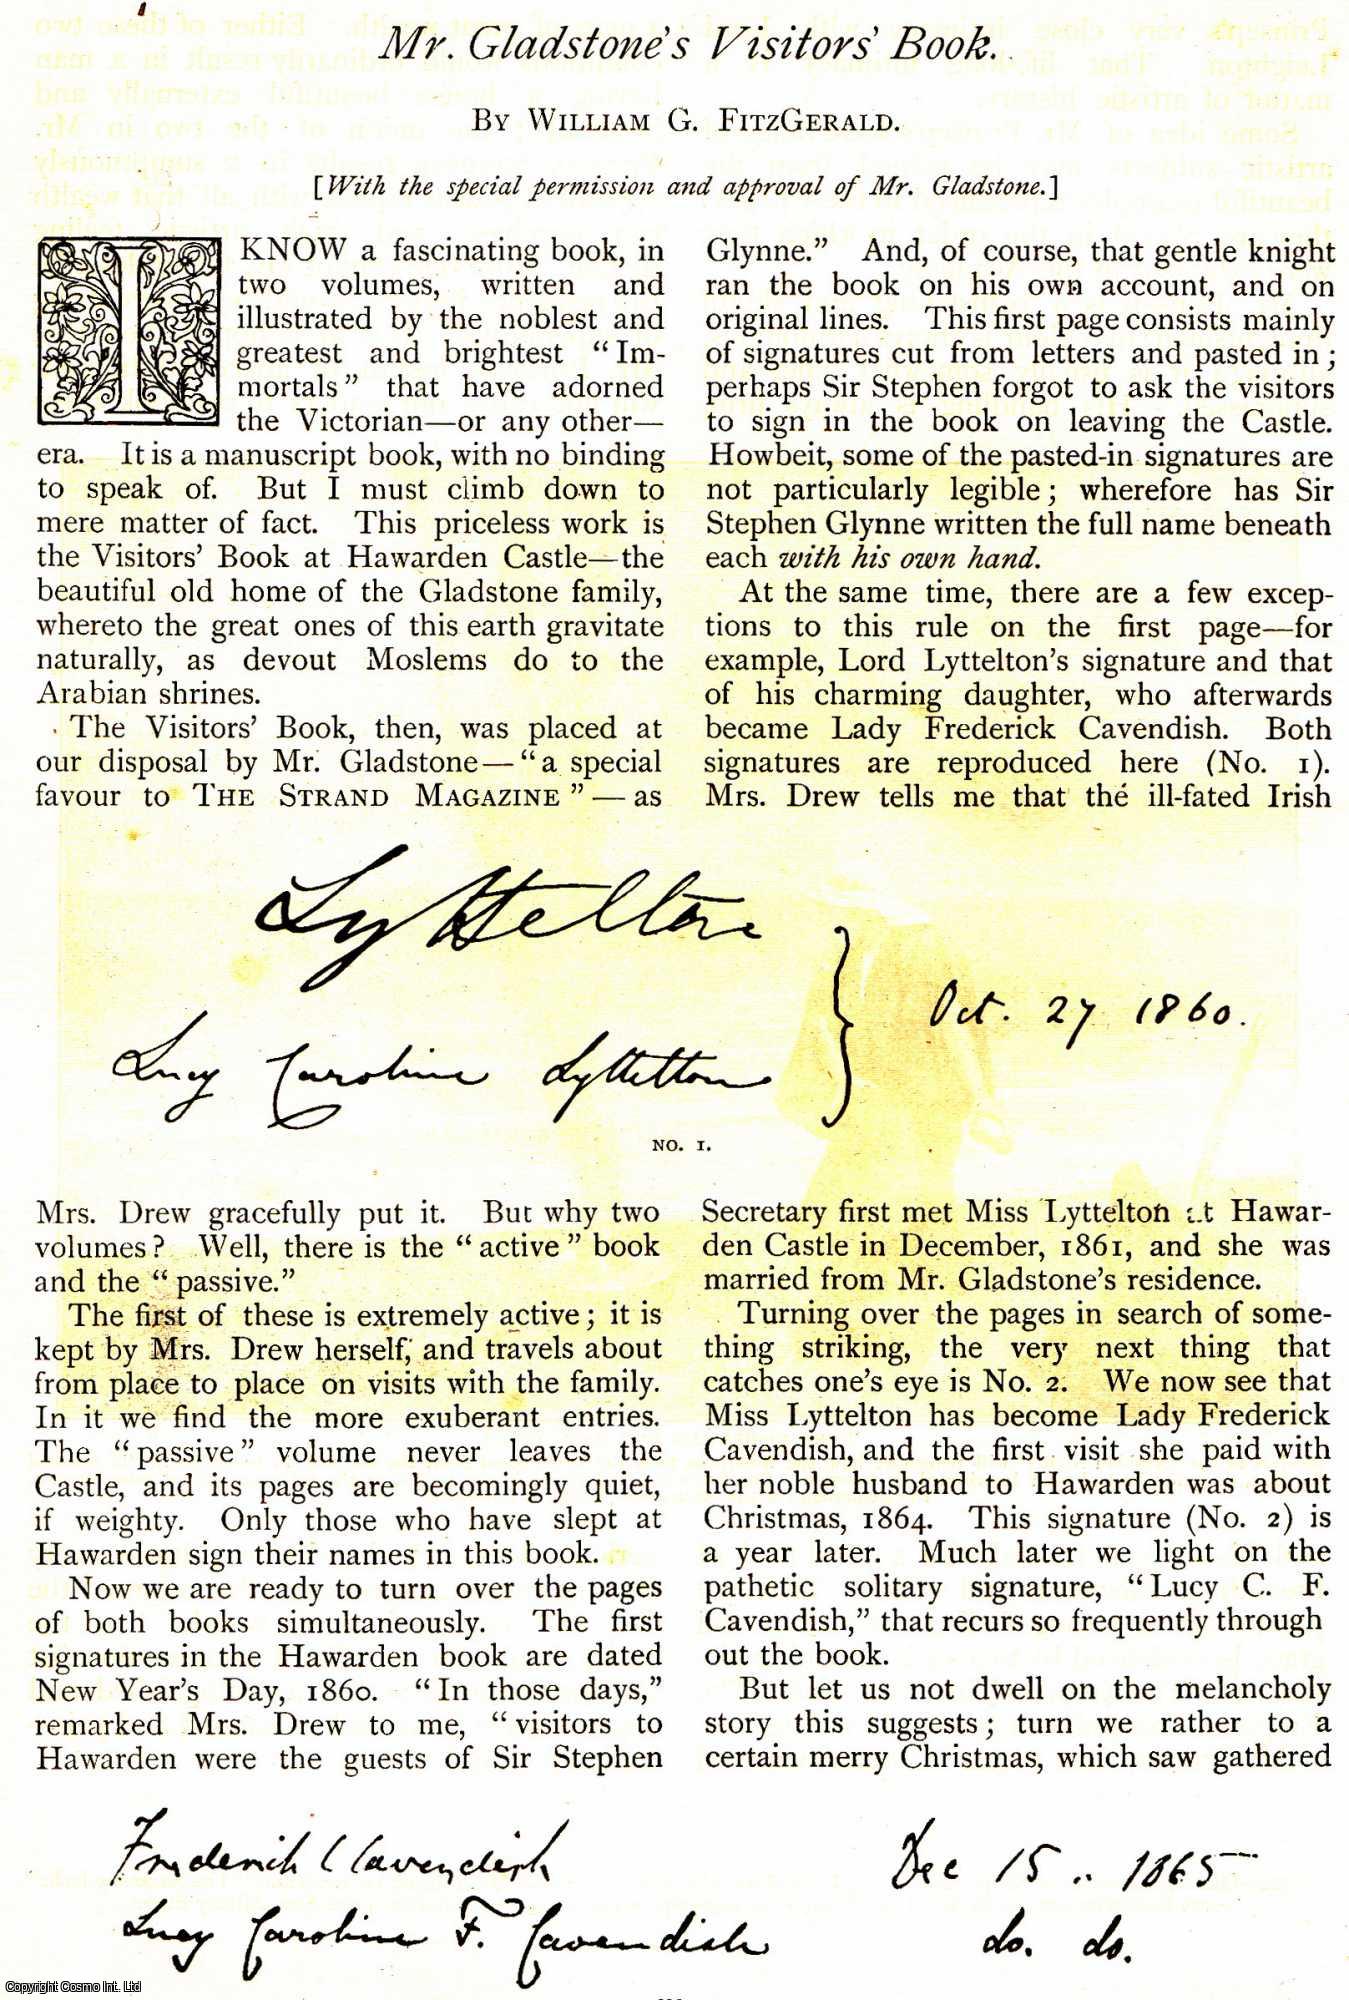 Mr. Gladstone's Visitors' Book.
BY WILLIAM G. FITZGERALD.
[With the special permission and approval of Mr. Gladstone.]
I KNOW a fascinating book, in
two volumes, written and
illustrated by the noblest and
greatest and brightest “Im-
mortals” that have adorned
the Victorian—or any other—
era. It is a manuscript book, with no binding
to speak of. But I must climb down to
mere matter of fact. This priceless work is
the Visitors' Book at Hawarden Castle—the
beautiful old home of the Gladstone family,
whereto the great ones of this earth gravitate
naturally, as devout Moslems do to the
Arabian shrines.
The Visitors' Book, then, was placed at
our disposal by Mr. Gladstone—“a special
favour to THE STRAND MAGAZINE”—as
Glynne.” And, of course, that gentle knight
ran the book on his own account, and on
original lines. This first page consists mainly
of signatures cut from letters and pasted in;
perhaps Sir Stephen forgot to ask the visitors
to sign in the book on leaving the Castle.
Howbeit, some of the pasted-in signatures are
not particularly legible; wherefore has Sir
Stephen Glynne written the full name beneath
each with his own hand.
At the same time, there are a few excep-
tions to this rule on the first page—for
example, Lord Lyttelton's signature and that
of his charming daughter, who afterwards
became Lady Frederick Cavendish. Both
signatures are reproduced here (No. 1).
Mrs. Drew tells me that the ill-fated Irish
Lyttelton
Lucy Caroline Lyttelton } Oct. 27 1860.
NO. 1.
Mrs. Drew gracefully put it. But why two
volumes? Well, there is the “active” book
and the “passive.”
The first of these is extremely active; it is
kept by Mrs. Drew herself, and travels about
from place to place on visits with the family.
In it we find the more exuberant entries.
The “passive” volume never leaves the
Castle, and its pages are becomingly quiet,
if weighty. Only those who have slept at
Hawarden sign their names in this book.
Now we are ready to turn over the pages
of both books simultaneously. The first
signatures in the Hawarden book are dated
New Year's Day, 1860. “In those days,”
remarked Mrs. Drew to me, “visitors to
Hawarden were the guests of Sir Stephen
Secretary first met Miss Lyttelton at Hawar-
den Castle in December, 1861, and she was
married from Mr. Gladstone's residence.
Turning over the pages in search of some-
thing striking, the very next thing that
catches one's eye is No. 2. We now see that
Miss Lyttelton has become Lady Frederick
Cavendish, and the first visit she paid with
her noble husband to Hawarden was about
Christmas, 1864. This signature (No. 2) is
a year later. Much later we light on the
pathetic solitary signature, “Lucy C. F.
Cavendish,” that recurs so frequently through
out the book.
But let us not dwell on the melancholy
story this suggests; turn we rather to a
certain merry Christmas, which saw gathered
Frederick C Cavendish Dec 15 .. 1865
Lucy Caroline F. Cavendish do. do.
Copyright Cosmo Int. Ltd